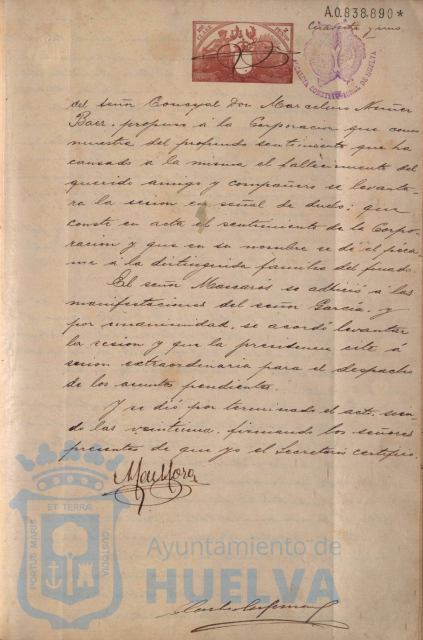 A0.838.890*
Cuarenta y uno
ALCALDIA CONSTITUCIONAL DE HUELVA
del señor Concejal Don Marcelino Núñez
Baez, propuso á la Corporacion que como
muestra del profundo sentimiento que ha
causado á la misma el fallecimiento del
querido amigo y compañero se levanta-
ra la sesion en señal de duelo; que
conste en acta el sentimiento de la Corpo-
racion y que en su nombre se dé el pesa-
me á la distinguida familia del finado.
El señor Mascarós se adhirió á las
manifestaciones del señor García, y
por unanimidad, se acordó levantar
la sesion y que la presidencia cite á
sesion extraordinaria para el despacho
de los asuntos pendientes.
Y se dió por terminado el acto, sien-
do las veintiuna, firmando los señores
presentes de que yo el Secretario certifico.
PORTUS MARIS ET TERRA CUSTODIA
Ayuntamiento de
HUELVA